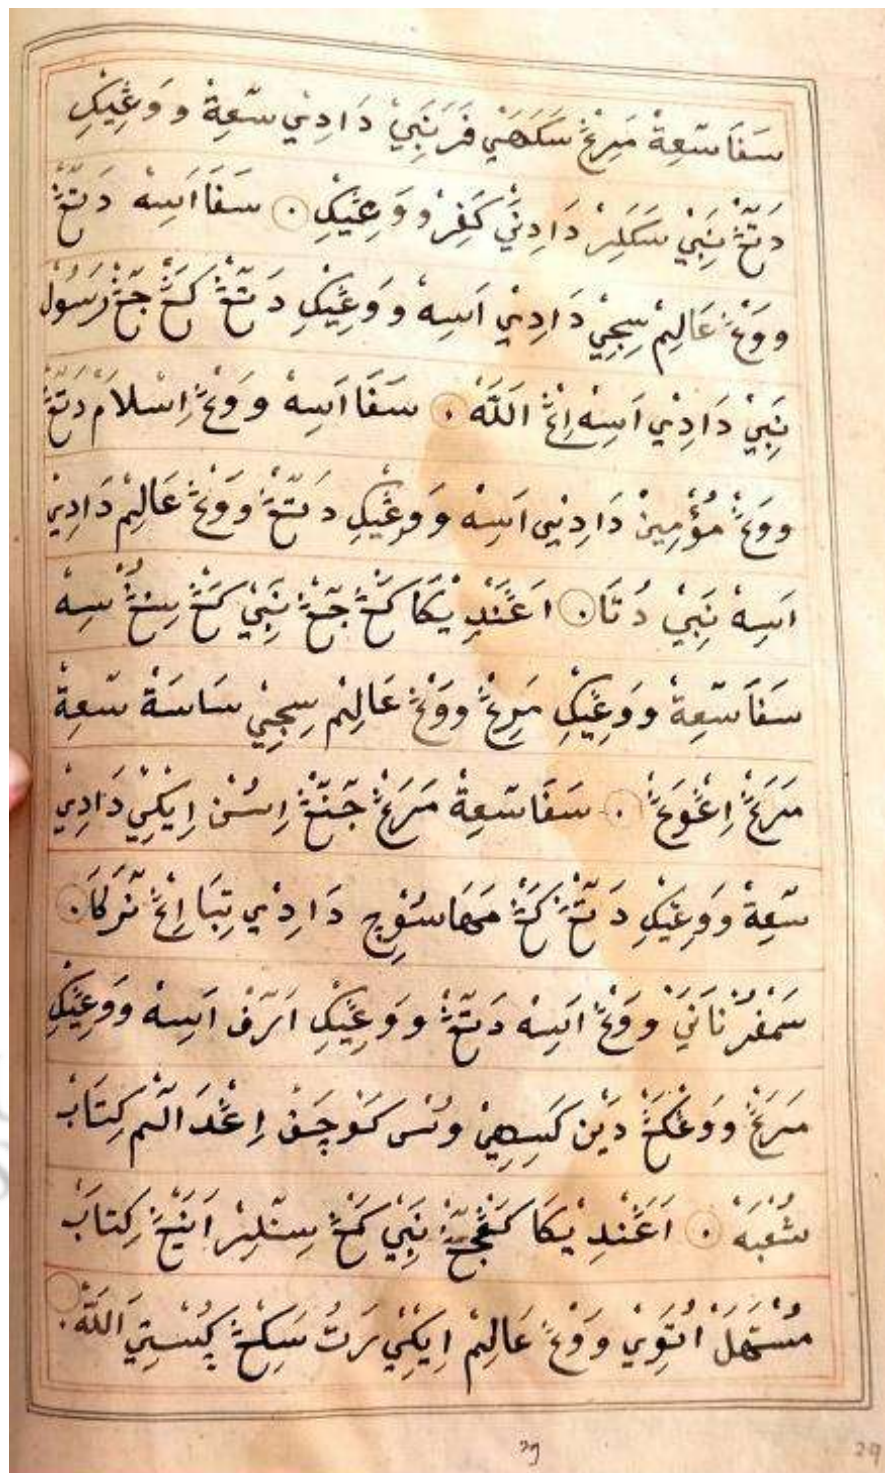 سَفَاسَڠِةْ مَرِڠْ سَكَهَيْ فَرَنَبِيْ دَادِيْ سَڠِةْ وَوَڠِيْكِ
دَتَّڠْ نَبِيْ سَكَلِرْ دَادِيْ كَفِرْ وَوَڠِيْكِ ۰ سَفَا اَسِهْ دَتَّڠْ
ووَڠْ عَالِمْ سِجِيْ دَادِيْ اَسِهْ وَوَڠِيْكِ دَتَّڠْ كَڠْ جَڠْ رَسُولْ
نَبِيْ دَادِيْ اَسِهْ اِڠْ اَللَّهْ ۰ سَفَا اَسِهْ ووَڠْ اِسْلَامْ دَتَّڠْ
ووَڠْ مُؤْمِينْ دَادِيْ اَسِهْ وَوَڠِيْكِ دَتَّڠْ ووَڠْ عَالِمْ دَادِيْ
اَسِهْ نَبِيْ دُتَا ۰ اَڠَنْدِيْكَا كَڠْ جَڠْ نَبِيْ كَڠْ سِڠْ سِهْ
سَفَاسَڠِةْ وَوَڠِيْكِ مَرِڠْ ووَڠْ عَالِمْ سِجِيْ سَاسَةْ سَڠِةْ
مَرَڠْ اِڠْوَڠْ ۰ سَفَاسَڠِةْ مَرَڠْ جَنَّڠْ اِسُنْ اِيْكِيْ دَادِيْ
سَڠِةْ وَوَڠِيْكِ دَتَّڠْ كَڠْ مَهَاسُوْچِ دَادِيْ تِبَا اِڠْ نَرَكَا ۰
سَمْفُرْنَانَيْ ووَڠْ اَسِهْ دَتَّڠْ وَوَڠِيْكِ اَرَفْ اَسِهْ وَوَڠِيْكِ
مَرَڠْ ووَڠْكَڠْ دَيْنْ كَسِهِيْ وُسْ كَوْچَفْ اِڠْدَالَمْ كِتَابْ
شُعْبَهْ ۰ اَڠَنْدِيْكَا كَڠْجَڠْ نَبِيْ كَڠْ سِنَلِرْ اَنَيْڠْ كِتَابْ
مُسْتَهَلْ اُتَوِيْ ووَڠْ عَالِمْ اِيْكِيْ رَتُ سَكِڠْ ڮُسْتِيْ اَللَّهْ ۰
٢٩
29